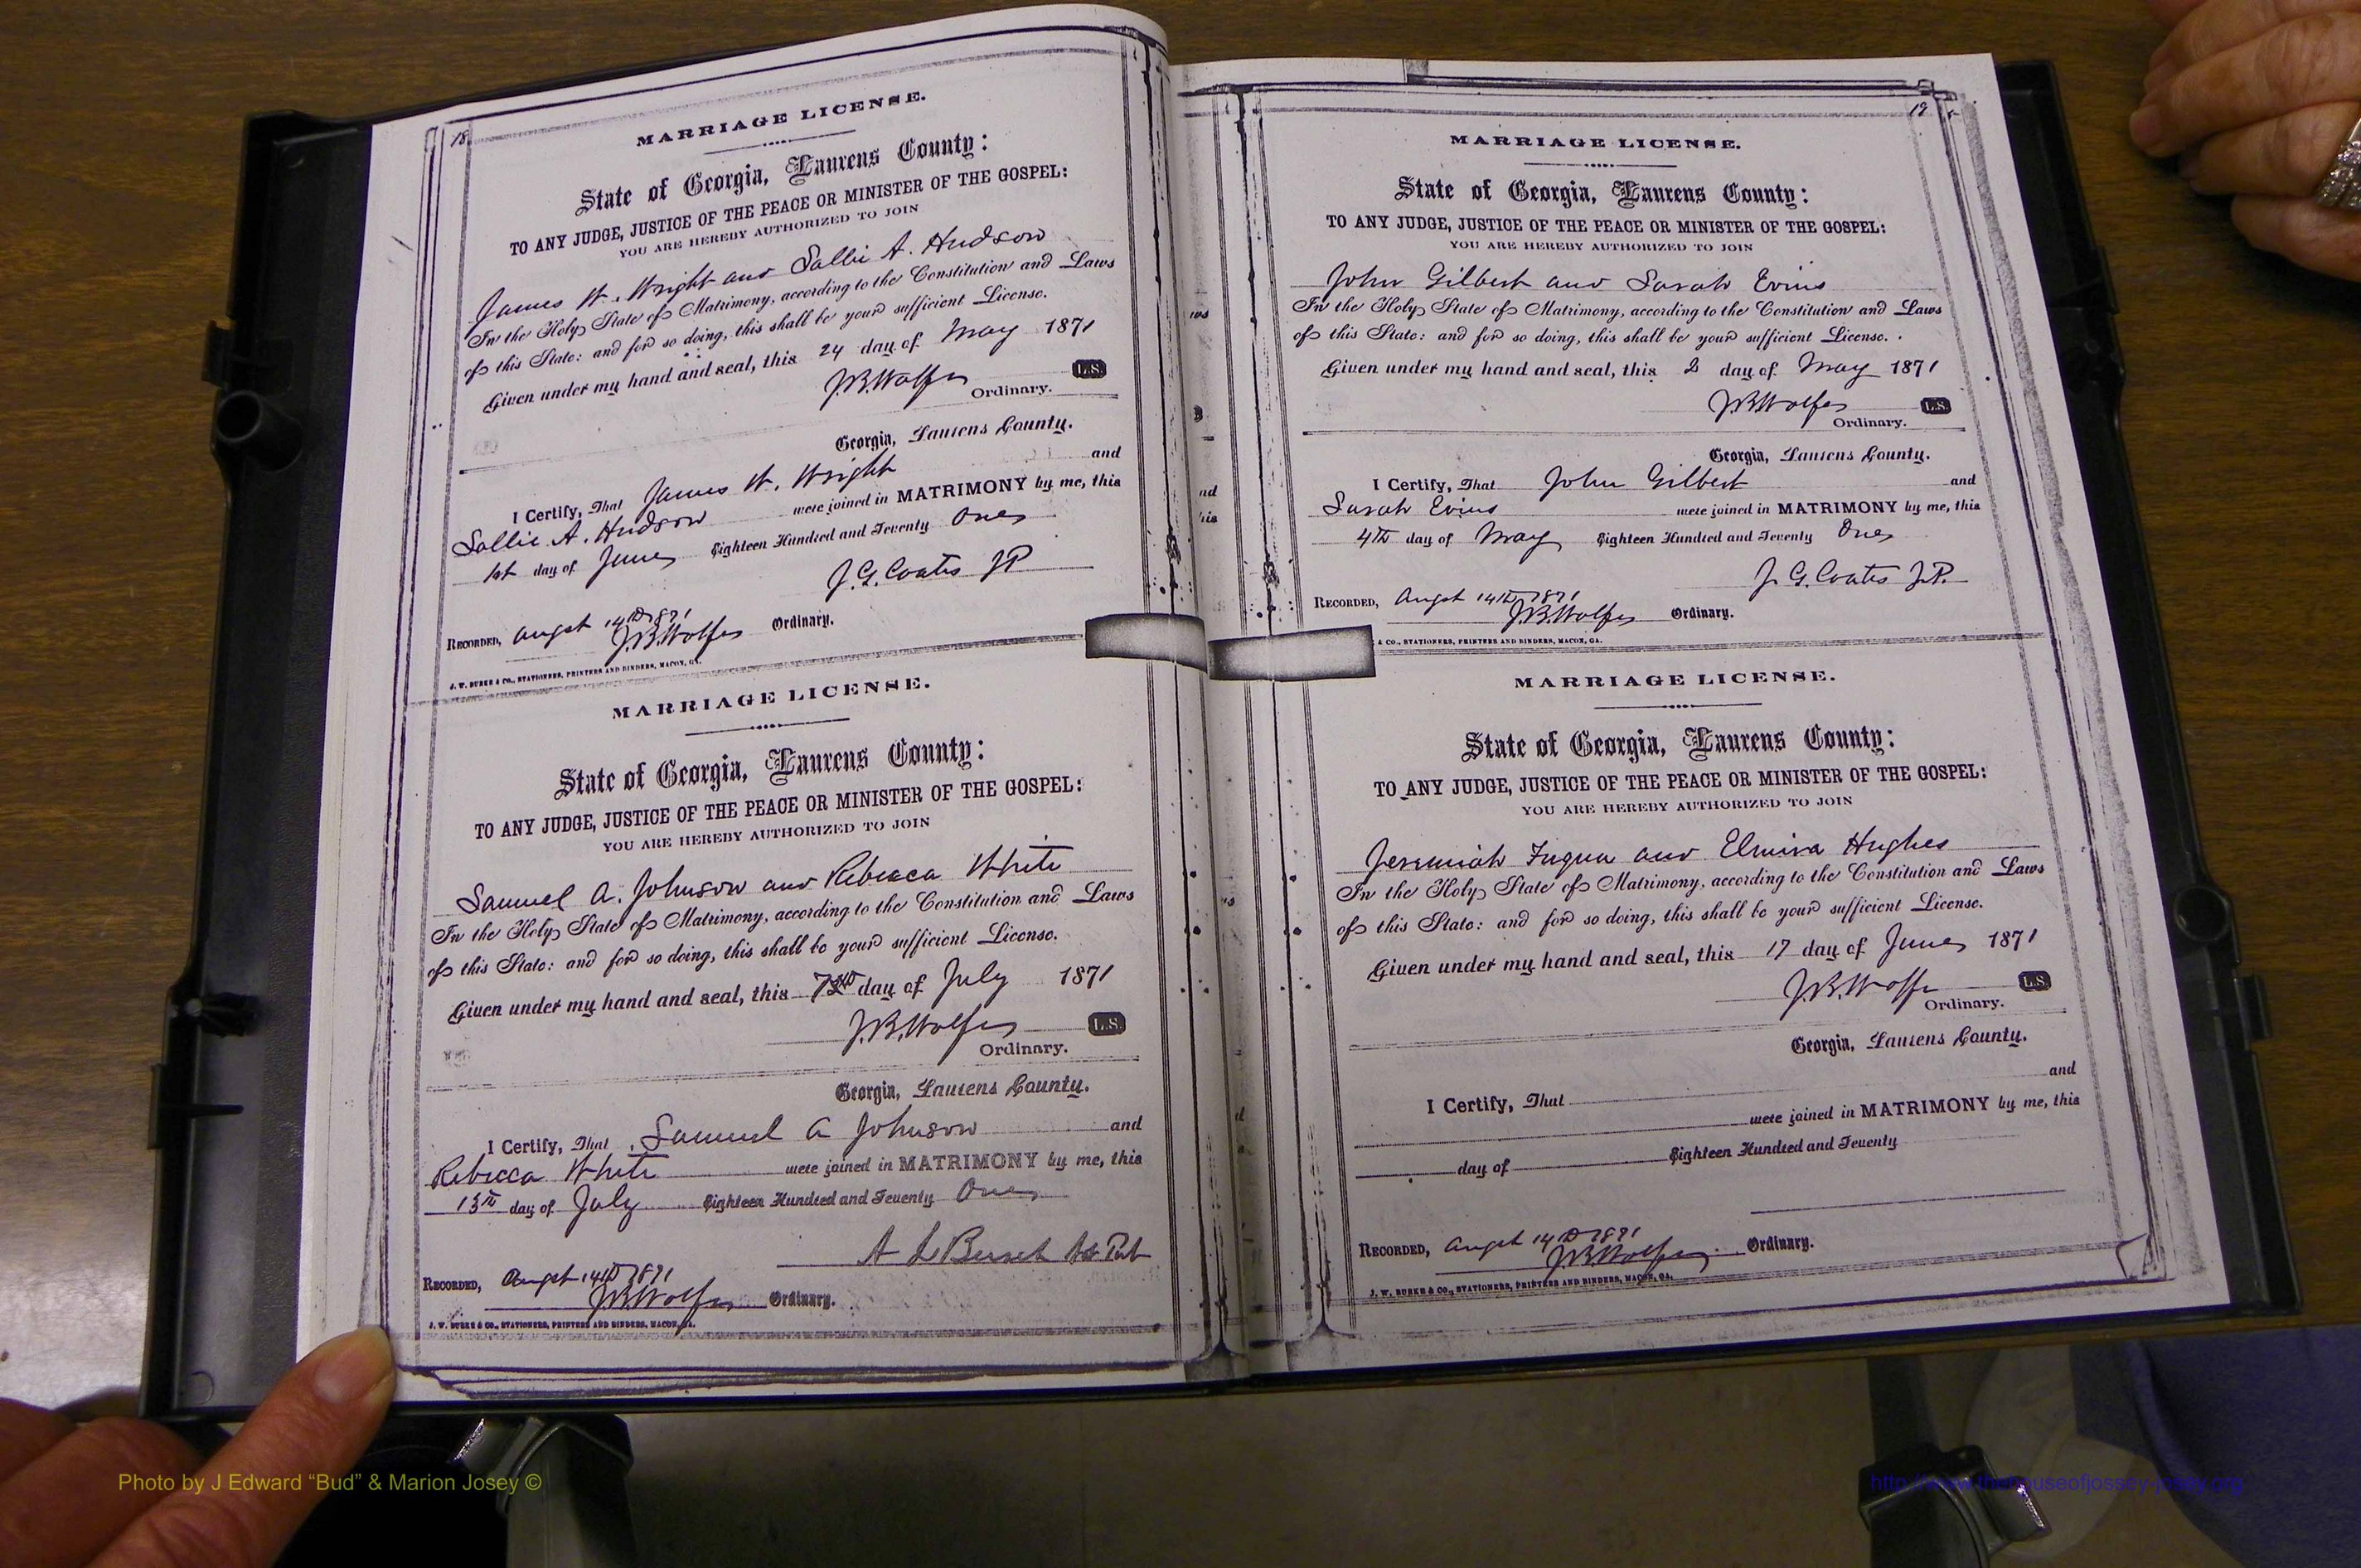 18
MARRIAGE LICENSE.
State of Georgia, Laurens County:
TO ANY JUDGE, JUSTICE OF THE PEACE OR MINISTER OF THE GOSPEL:
YOU ARE HEREBY AUTHORIZED TO JOIN
James W. Wright and Sallie A. Hudson
In the Holy State of Matrimony, according to the Constitution and Laws
of this State: and for so doing, this shall be your sufficient License.
Given under my hand and seal, this 24 day of May 1871
J.B. Wolfe L.S.
Ordinary.
Georgia, Laurens County.
I Certify, That James W. Wright and
Sallie A. Hudson were joined in MATRIMONY by me, this
1st day of June Eighteen Hundred and Seventy One
J. G. Coats JP
RECORDED, Augst 14th 1871
J.B. Wolfe Ordinary.
J. W. BURKE & CO., STATIONERS, PRINTERS AND BINDERS, MACON, GA.
MARRIAGE LICENSE.
State of Georgia, Laurens County:
TO ANY JUDGE, JUSTICE OF THE PEACE OR MINISTER OF THE GOSPEL:
YOU ARE HEREBY AUTHORIZED TO JOIN
Samuel A. Johnson and Rebecca White
In the Holy State of Matrimony, according to the Constitution and Laws
of this State: and for so doing, this shall be your sufficient License.
Given under my hand and seal, this day of July 1871
J.B. Wolfe L.S.
Ordinary.
Georgia, Laurens County.
I Certify, That Samuel A Johnson and
Rebecca White were joined in MATRIMONY by me, this
13th day of July Eighteen Hundred and Seventy One
A L
RECORDED, Augst 14th 1871
J.B. Wolfe Ordinary.
J. W. BURKE & CO., STATIONERS, PRINTERS AND BINDERS, MACON, GA.
19
MARRIAGE LICENSE.
State of Georgia, Laurens County:
TO ANY JUDGE, JUSTICE OF THE PEACE OR MINISTER OF THE GOSPEL:
YOU ARE HEREBY AUTHORIZED TO JOIN
John Gilbert and Sarah Evins
In the Holy State of Matrimony, according to the Constitution and Laws
of this State: and for so doing, this shall be your sufficient License.
Given under my hand and seal, this 2 day of May 1871
J.B. Wolfe L.S.
Ordinary.
Georgia, Laurens County.
I Certify, That John Gilbert and
Sarah Evins were joined in MATRIMONY by me, this
4th day of May Eighteen Hundred and Seventy One
J. G. Coats J.P.
RECORDED, Augst 14th 1871
J.B. Wolfe Ordinary.
& CO., STATIONERS, PRINTERS AND BINDERS, MACON, GA.
MARRIAGE LICENSE.
State of Georgia, Laurens County:
TO ANY JUDGE, JUSTICE OF THE PEACE OR MINISTER OF THE GOSPEL:
YOU ARE HEREBY AUTHORIZED TO JOIN
Jeremiah Fuqua and Elmira Hughes
In the Holy State of Matrimony, according to the Constitution and Laws
of this State: and for so doing, this shall be your sufficient License.
Given under my hand and seal, this 17 day of June 1871
J.B. Wolfe L.S.
Ordinary.
Georgia, Laurens County.
I Certify, That and
were joined in MATRIMONY by me, this
day of Eighteen Hundred and Seventy
RECORDED, Augst 14th 1871
J.B. Wolfe Ordinary.
J. W. BURKE & CO., STATIONERS, PRINTERS AND BINDERS, MACON, GA.
Photo by J Edward “Bud” & Marion Josey ©
http://www.thehouseofjossey-josey.org